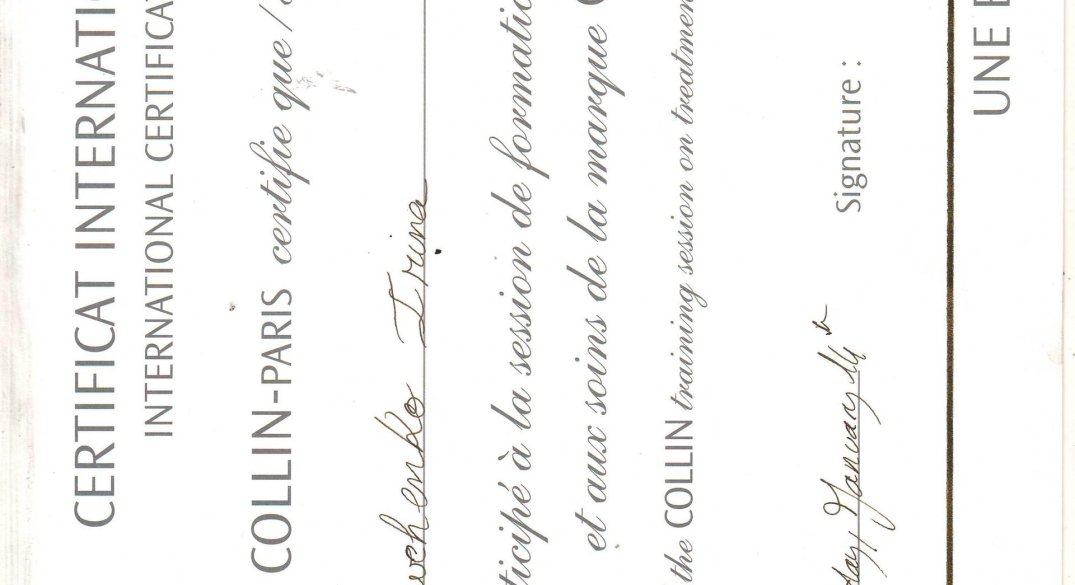 CERTIFICAT INTERNATI
INTERNATIONAL CERTIFICA
COLLIN-PARIS certifie que /
schenko Irina
ticipé à la session de formatio
et aux soins de la marque
the COLLIN training session on treatmen
day, January 11th
Signature :
UNE